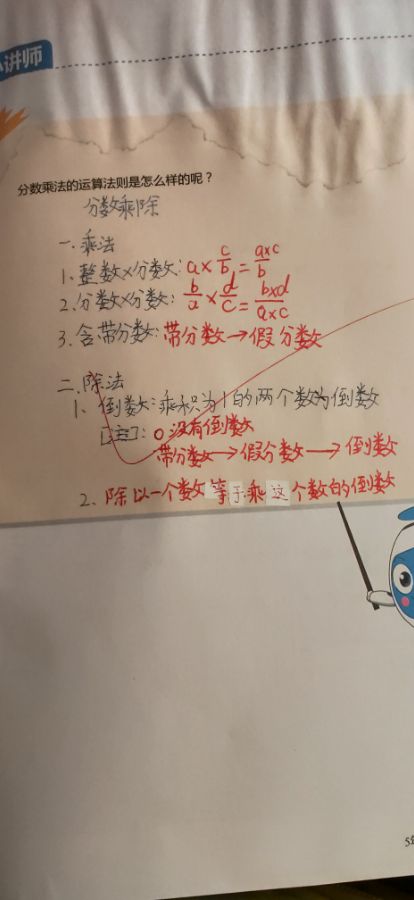 小讲师
分数乘法的运算法则是怎么样的呢？
分数乘除
一.乘法
1.整数×分数:a×c/b=a×c/b
2.分数×分数:b/a×d/c=b×d/a×c
3.含带分数:带分数→假分数
二.除法
1、倒数:乘积为1的两个数为倒数
[注]:0没有倒数
带分数→假分数→倒数
2、除以一个数等于乘这个数的倒数